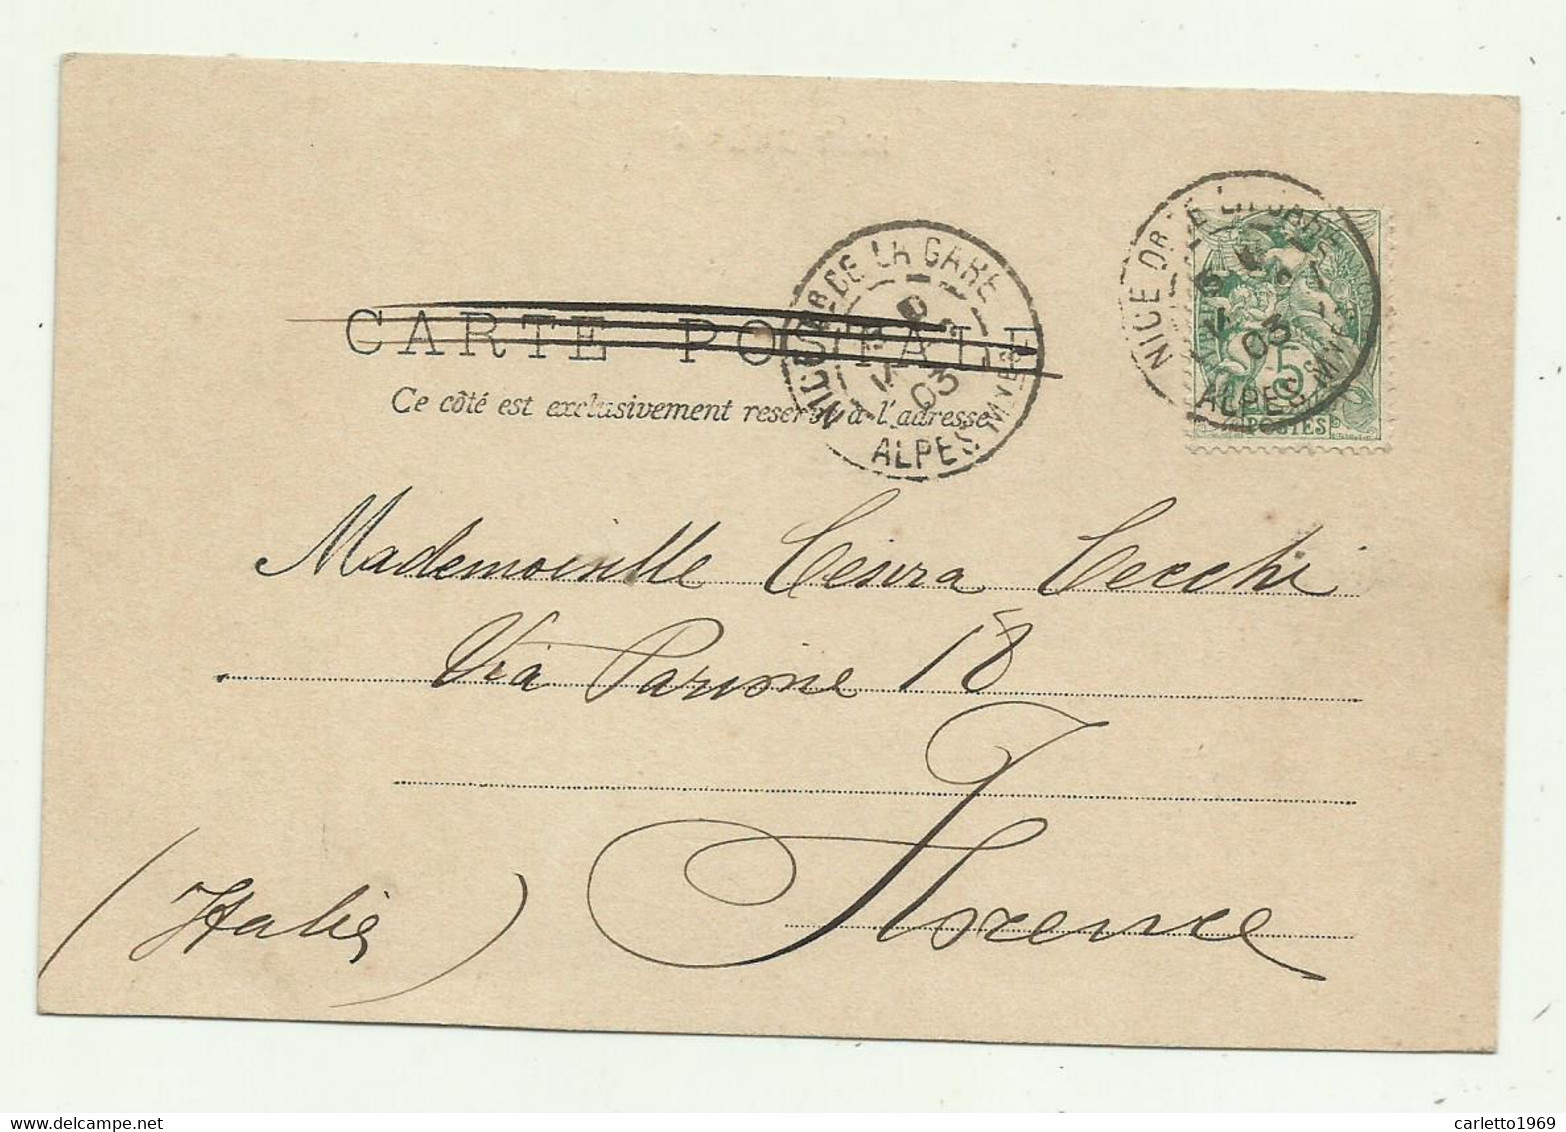 CARTE POSTALE
Ce côté est exclusivement reservé à l'adresse
NICE QR DE LA GARE
03
ALPES MMES
NICE QR DE LA GARE
03
ALPES MMES
5
POSTES
Mademoiselle Cesira Cecchi
Via Parione 18
Florence
(Italie)
carletto1969